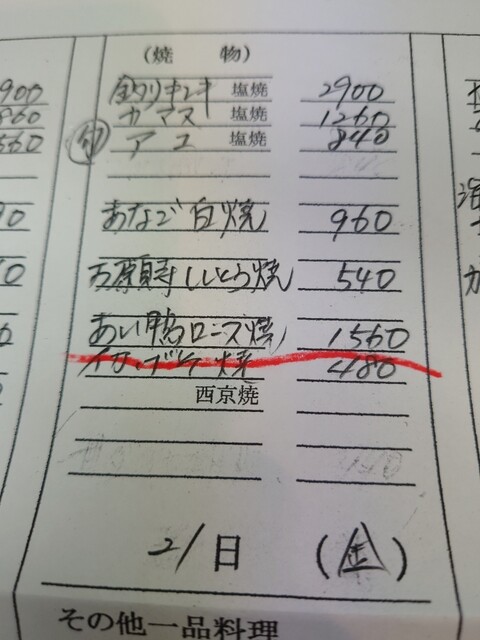 (焼 物)
釣りキンキ 塩焼 2900
カマス 塩焼 1260
アユ 塩焼 840
あなご白焼 960
万願寺ししとう焼 540
あい鴨ロース焼 1560
焼 480
西京焼
21日 (金)
その他一品料理
900
860
560